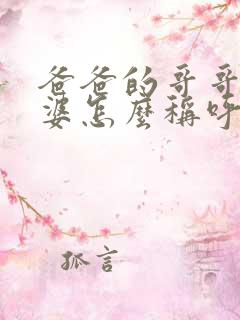 爸爸的哥哥
婆怎麼稱呼
孤言